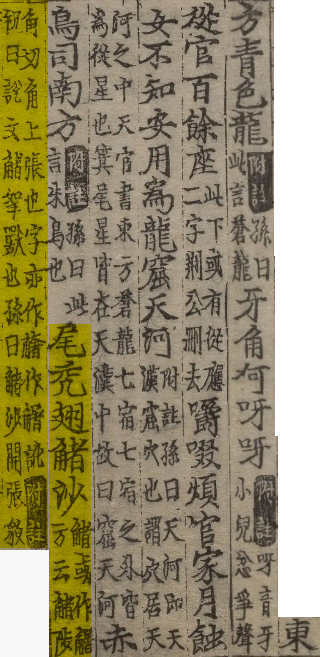 東
方青色龍附註孫曰此言蒼龍牙角何呀呀附註呀音牙小兒忿爭聲
從官百餘座此下或有從應二字荆公刪去嚼啜煩官家月蝕
女不知安用爲龍窟天河附註孫曰天河即天漢窟穴也謂穴居天
河之中天官書東方蒼龍七宿七宿之外皆爲從星也箕尾星宿在天漢中故曰窟天河赤
鳥司南方附註孫曰此言朱鳥也尾禿翅觰沙觰或作方云觰陟
角切角上張也字亦作作訛附註曰說文觰拏獸也孫曰觰沙開張貌